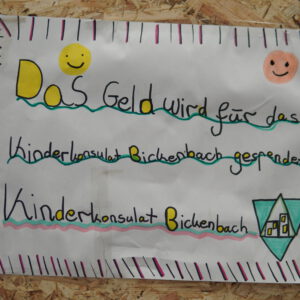 Das Geld wird für das
Kinderkonsulat Bickenbach gespendet
Kinderkonsulat Bickenbach